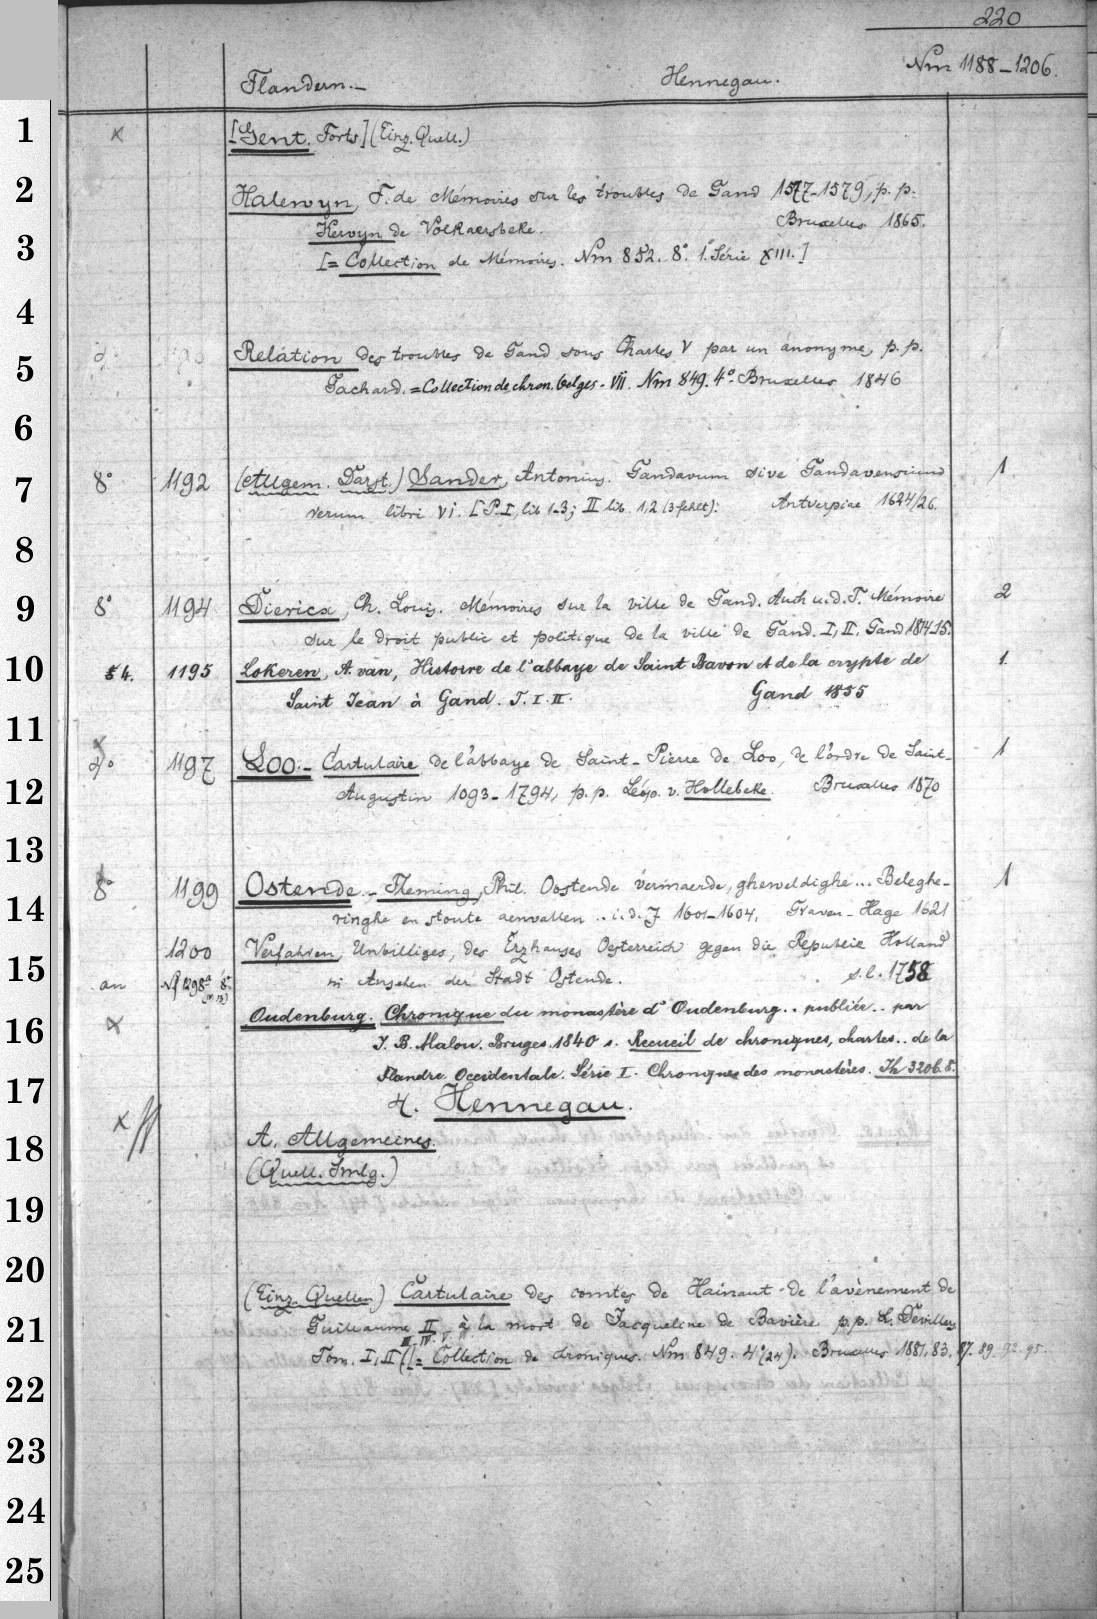 220
Flandern.- Hennegau. Nm 1188-1206.
1 x [Gent. Forts] (Einz. Quell.)
2 Halewyn, F. de Mémoires sur les troubles de Gand 1577-1579, p. p.
Kervyn de Volkaersbeke. Bruxelles 1865.
3 [= Collection de Mémoires. Nm 852. 8°. 1. Série XIII.]
4
5 Relation des troubles de Gand sous Charles V par un anonyme, p. p.
Gachard. = Collection de chron. belges. VII. Nm 849. 4°. Bruxelles 1846
6
7 8° 1192 (Allgem. Darst.) Sander, Antonius. Gandavum sive Gandavensium 1
rerum libri VI. [P. I, lib 1-3; II lib. 1,2 (3 fehlt). Antverpiae 1624/26.
8
9 8° 1194 Diericx, Ch. Louis. Mémoires sur la ville de Gand. Auch u. d. T. Mémoire 2
sur le droit public et politique de la ville de Gand. I, II, Gand 1814.15.
10 4. 1195 Lokeren, A. van, Histoire de l'abbaye de Saint Bavon et de la crypte de 1.
Saint Jean à Gand. T. I. II. Gand 1855
11
4° 1197 Loo:- Cartulaire de l'abbaye de Saint-Pierre de Loo, de l'ordre de Saint- 1
12 Augustin 1093-1794, p. p. Léop. v. Hollebeke. Bruxelles 1870
13
8° 1199 Ostende.- Fleming, Phil. Oostende vermaerde, gheweldighe... Beleghe- 1
14 ringhe en stoute aenvallen .. i. d. J 1601-1604. Graven-Hage 1621
1200 Verfahren, Unbilliges, des Erzhauses Oesterreich gegen die Republic Holland
15 an Nf 1298a 8° in Ansehen der Stadt Ostende. s. l. 1758
16 x Oudenburg. Chronique du monastère d'Oudenburg.. publiée.. par
J. B. Malou. Bruges. 1840 s. Recueil de chroniques, chartes.. de la
Flandre Occidentale. Série I. Chroniques des monastères. 3206. 8°.
17 Hennegau.
18 x A. Allgemeines.
(Quell. Smlg.)
19
20
(Einz. Quellen) Cartulaire des comtes de Hainaut de l'avènement de
21 Guillaume II à la mort de Jacqueline de Bavière p. p. L. Devillers
III. IV. V. VI
Tom. I, II [= Collection de chroniques. Nm 849. 4° (24). Bruxelles 1881, 83. 87. 89. 92. 95.
22
23
24
25